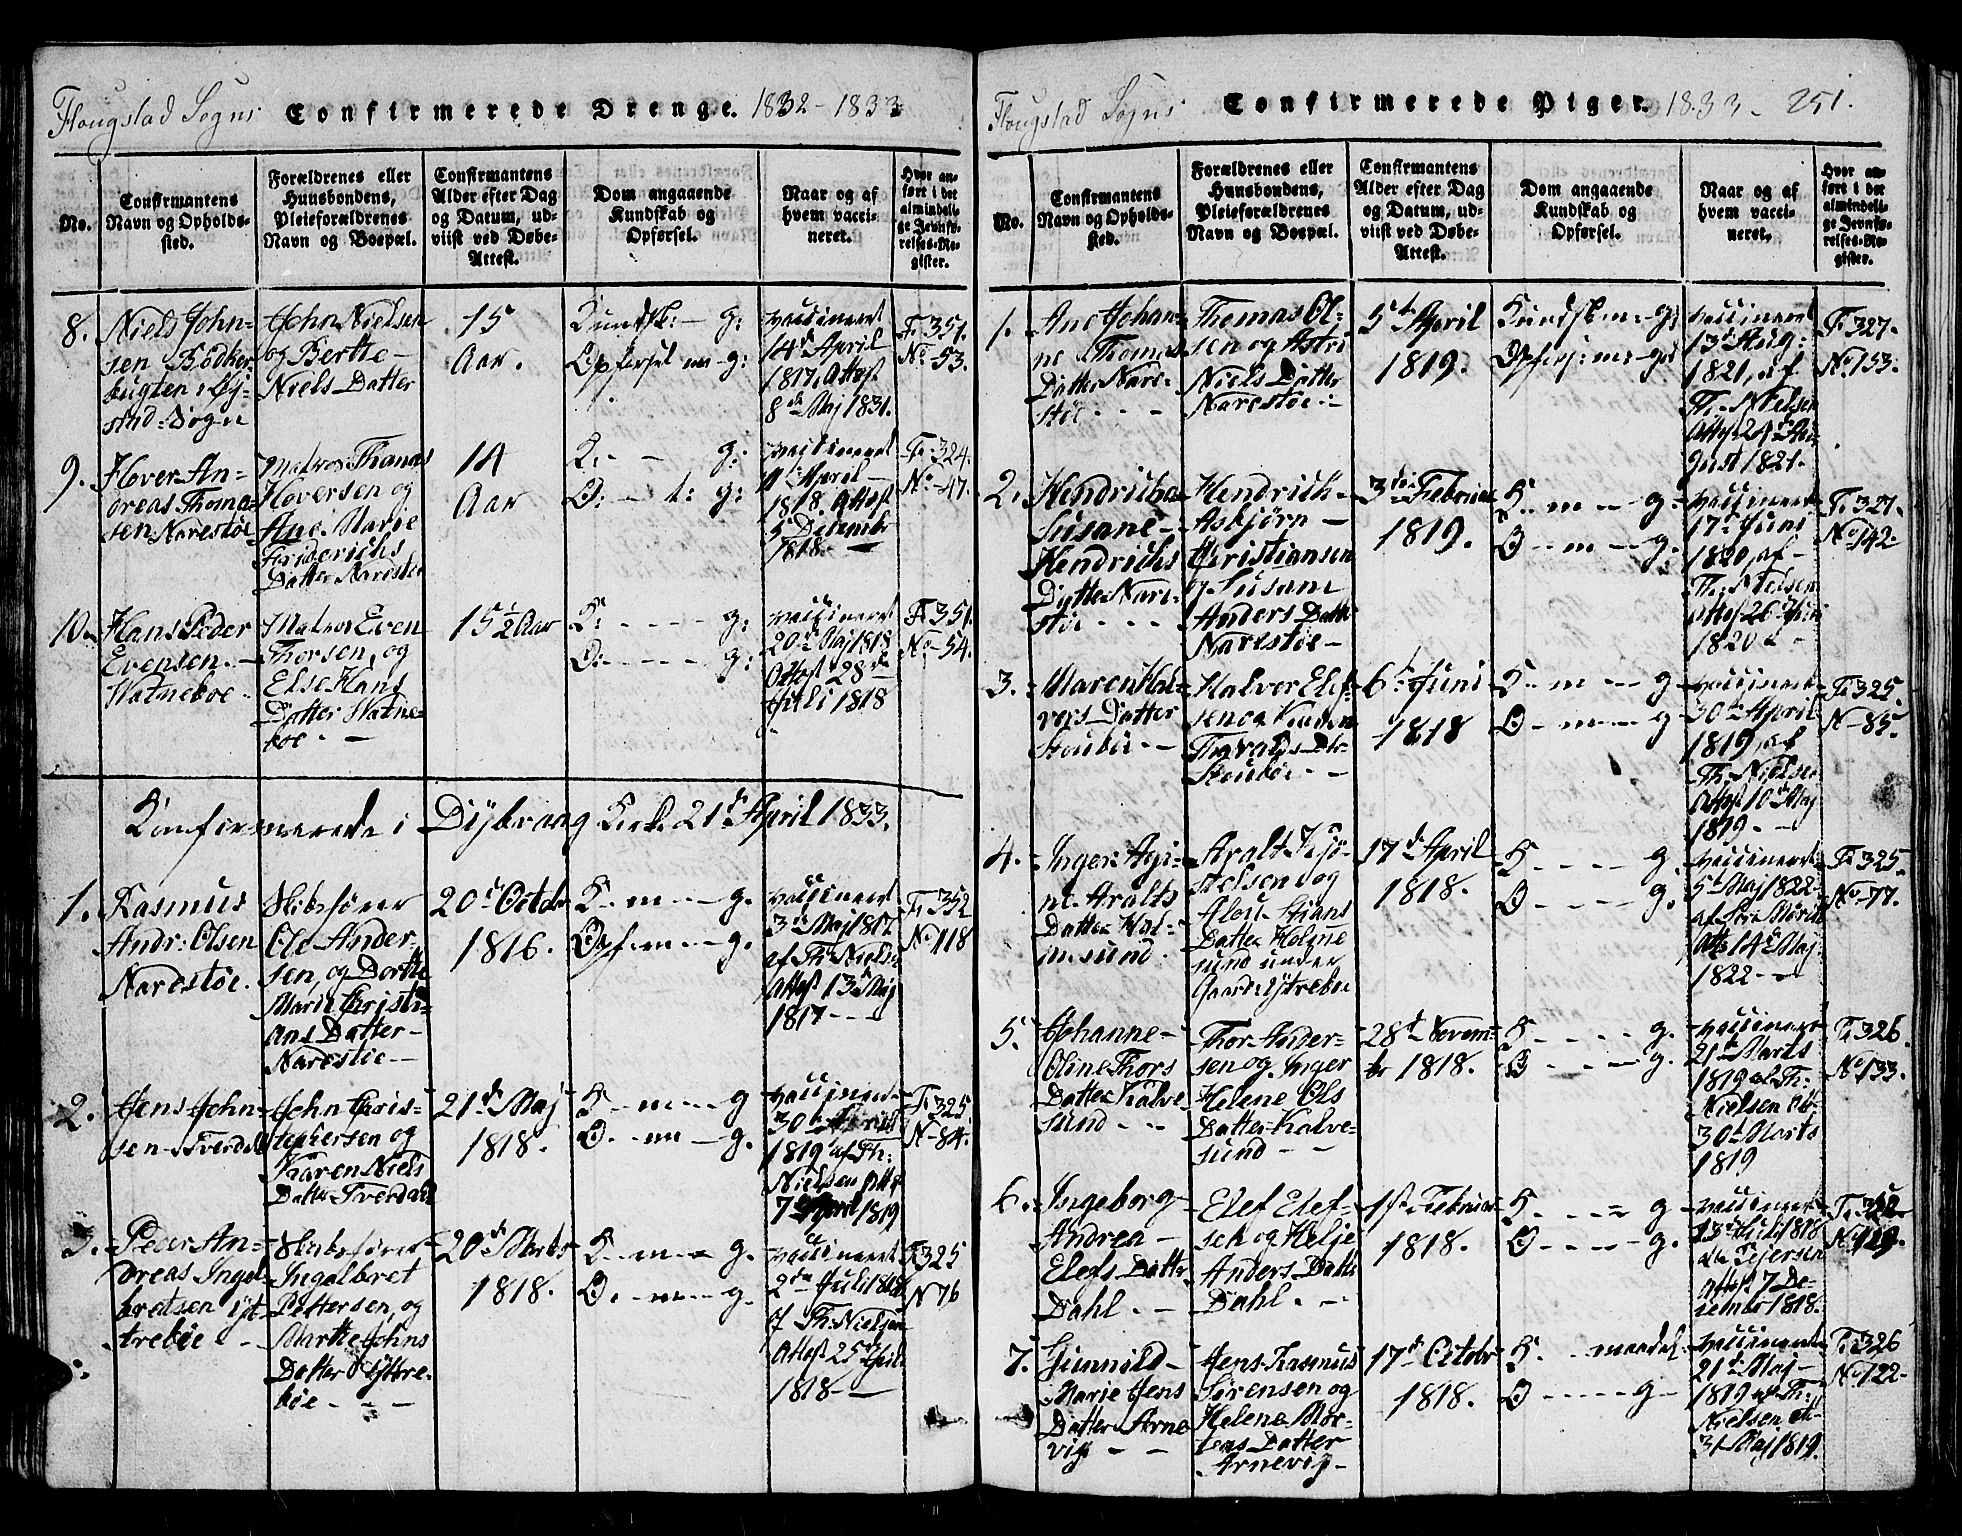 Flougstad Sogns Confirmerede Drenge. 1832-1833
No.
Confirmantens
Navn og Opholds-
sted.
Forældrenes eller
Huusbondens,
Pleieforældrenes
Navn og Boepæl.
Confirmantens
Alder efter Dag
og Datum, ud-
viist ved Døbe-
Attest.
Dom angaaende
Kundskab og
Opførsel.
Naar og af
hvem vacci-
neret.
Hvor an-
ført i det
almindeli-
ge Jevnfø-
relses-Re-
gister.
8.
Niels John-
sen Bödker-
bugten i Öy-
stad: Sogn
John Nielsen
og Berthe
Niels Datter
15
Aar.
Kundsk: - g:
Opførsel m - g:
vaccineret
14de April
1817, Attest
8de Maj 1831.
F: 351.
No 53.
9.
Hover An-
dreas Thoma-
sen Narestöe
Matros Thomas
Hoversen og
Ane Marie
Friderichs
Datter Narestöe
14
Aar
K: - - g:
O: - t: g:
vaccineret
April
1818. Attest
5 Decembr
1818. -
F: 324.
No 47.
10.
Hans Peder
Evensen. -
Watneboe.
Matros Even
Thorsen, og
Else Hans
Datter Watne-
boe. -
15½ Aar
K: - - - - g:
O: - - - - g:
vaccineret
20de Maj 1818
Attest 28de
Juli 1818
F: 351.
No 54.
Confirmerede i Dijbvaag Kirke 21de April 1833.
1.
Rasmus
Andr: Olsen
Narestöe.
Ole Ander-
sen, og Dorthe
Marie Christi-
ans Datter -
Narestöe -
20de Octobr
1816.
K. - m - - g.
Opf - m - - g.
vaccineret
3de Maj 1817
af Th: Nielsen
Attest 13de Maj
1817 - - -
F: 352
No 118
2.
Jens John-
sen Tverdal
John Chris-
tophersen og
Karen Niels
Datter Tverdal
21de Maj
1818.
K. - m - - g
O. - m - g.
vaccineret
30te April
1819 af Th:
Nielsen Attest
7 April 1819
F: 325
N-84.
3.
Peder An-
dreas Ingel-
bretsen Yt-
treböe -
Ingelbret
Pettersen, og
Marthe Johns
Datter Yttre-
böe - - -
20de Marts
1818.
K. - m - - g.
O. - m - - g.
vaccineret
2den Juli 1818
af Th: Nielsen
Attest 25de Juli
1818 - -
F: 325
N 76
Flougstad Sogns Confirmerede Piger. 1833 - 251.
No.
Confirmantens
Navn og Opholds-
sted.
Forældrenes eller
Huusbondens,
Pleieforældrenes
Navn og Boepæl.
Confirmantens
Alder efter Dag
og Datum, ud-
viist ved Døbe-
Attest.
Dom angaaende
Kundskab og
Opførsel.
Naar og af
hvem vacci-
neret.
Hvor an-
ført i det
almindeli-
ge Jevnfø-
relses-Re-
gister.
1.
Ane Johan-
ne Thomas
Datter Nare-
stöe. - -
Thomas Ol-
sen og Astri
Niels Datter
Narestöe -
5te April
1819.
Kundsk m: - g:
Opførs: m: - g:
vaccineret
13de Aug:
1821, af
Th. Nielsen
Attest 24de Au-
gust 1821.
F: 327.
No 153.
2.
Hendricha
Susane -
Hendrichs
Datter Nare-
stöe - - -
Hendrich
Asbjörn -
Christiansen
og Susane
Anders Datter
Narestöe -
3die Februar
1819.
K. - m - - g.
O - - m - - g.
vaccineret
17de Juni
1820, af
Th. Nielsen
Attest 26 Juni
1820 -
F: 327.
No 142.
3.
Maren Hal-
vors Datter
Stouböe. -
Halver Elef-
sen og Karen
Tharalds Dtr
Stouböe. - -
6te Juni
1818
K. - m - - g
O - m - - g
vaccineret
30te April
1819, af
Th. Nielsen
Attest 10de Maj
1819. -
F: 325.
N-85.
4.
Inger Agi-
ne Aralts
Datter Hal-
msund.
Aralt Kjö-
stelsen og
Alou Hans
Datter Holme
sund under
Gaarde Ytreboe
17de April
1818.
K - - - - g.
O - - - - g.
vaccineret
5te Maj 1822
af Sre Mörch
Att 14de Maj
1822 - -
F: 325.
No 77.
5.
Johanne -
Oline Thors
Datter Kalve
sund - -
Thor Ander-
sen og Inger
Helene Ols
Datter Kalve-
sund - -
28de Novem-
br 1818.
K - - - - g.
O - - - - g.
vaccineret
21de Marts
1819 af Th:
Nielsen At-
30te Marts
1819
F: 326.
No 133.
6.
Ingeborg
Andrea -
Elefs Datter
Dahl. -
Elef Elef-
sen og Helje
Anders Datter
Dahl. -
1ste Februar
1818.
K. - - - - g
O - - - - g.
vaccineret
13de Juli 1818
Attest 7 De-
cember 1818.
No 119.
7.
Gunnild -
Marie Jens
Datter Arne
vig - -
Jens Rasmus
Sörensen og
Helene Mor-
tens Datter
Arnevig -
17de Octobr
1818.
K. - maadel.
O - - - - g -
vaccineret
21de Maj -
1819 af Th:
Nielsen At-
31 Maj 1819.
F: 326
No 122